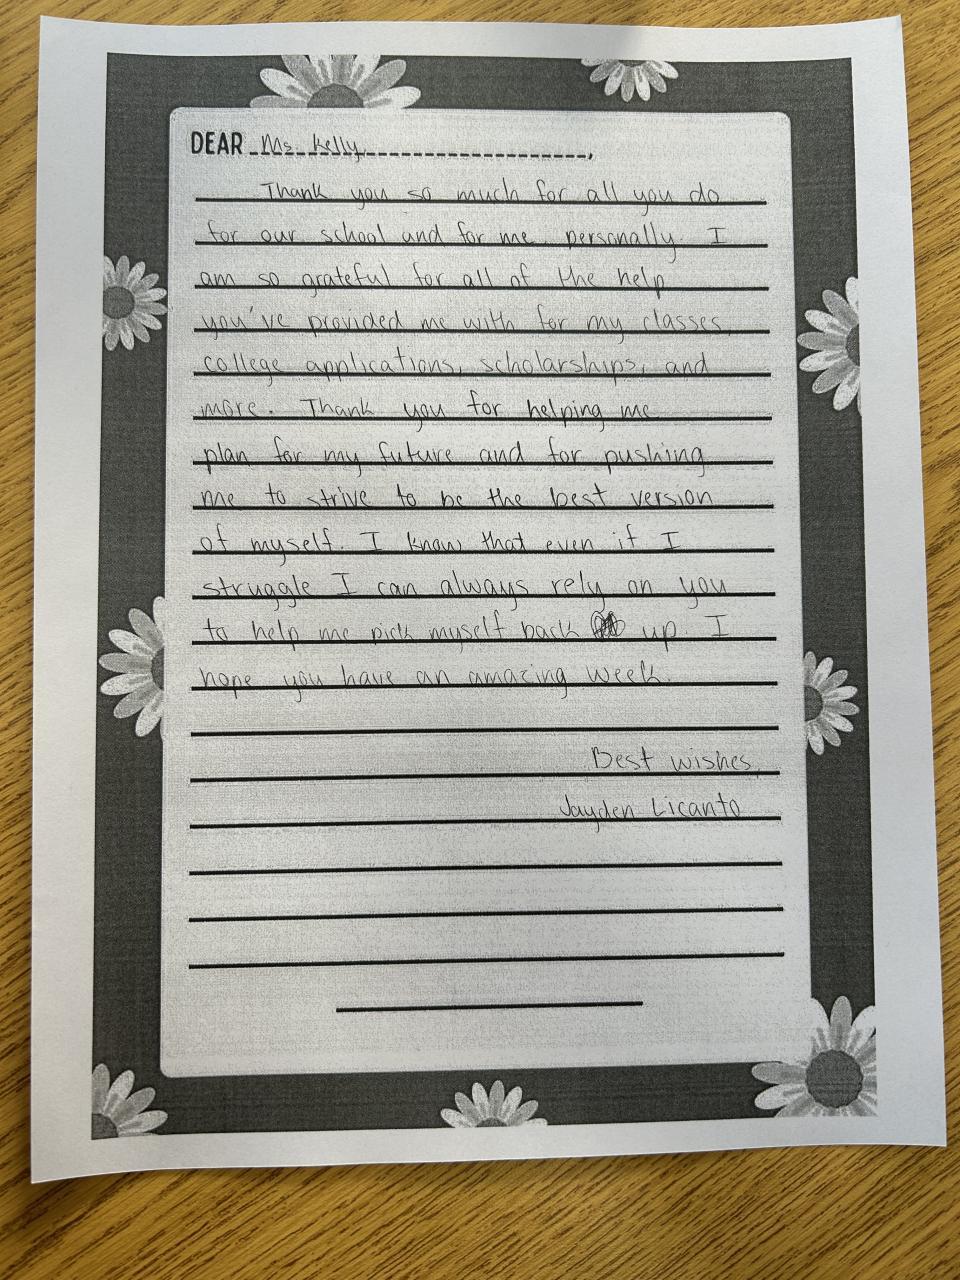 DEAR Ms. Kelly,
Thank you so much for all you do
for our school and for me personally. I
am so grateful for all of the help
you've provided me with for my classes,
college applications, scholarships, and
more. Thank you for helping me
plan for my future and for pushing
me to strive to be the best version
of myself. I know that even if I
struggle I can always rely on you
to help me pick myself back up. I
hope you have an amazing week.
Best wishes,
Jayden Licanto